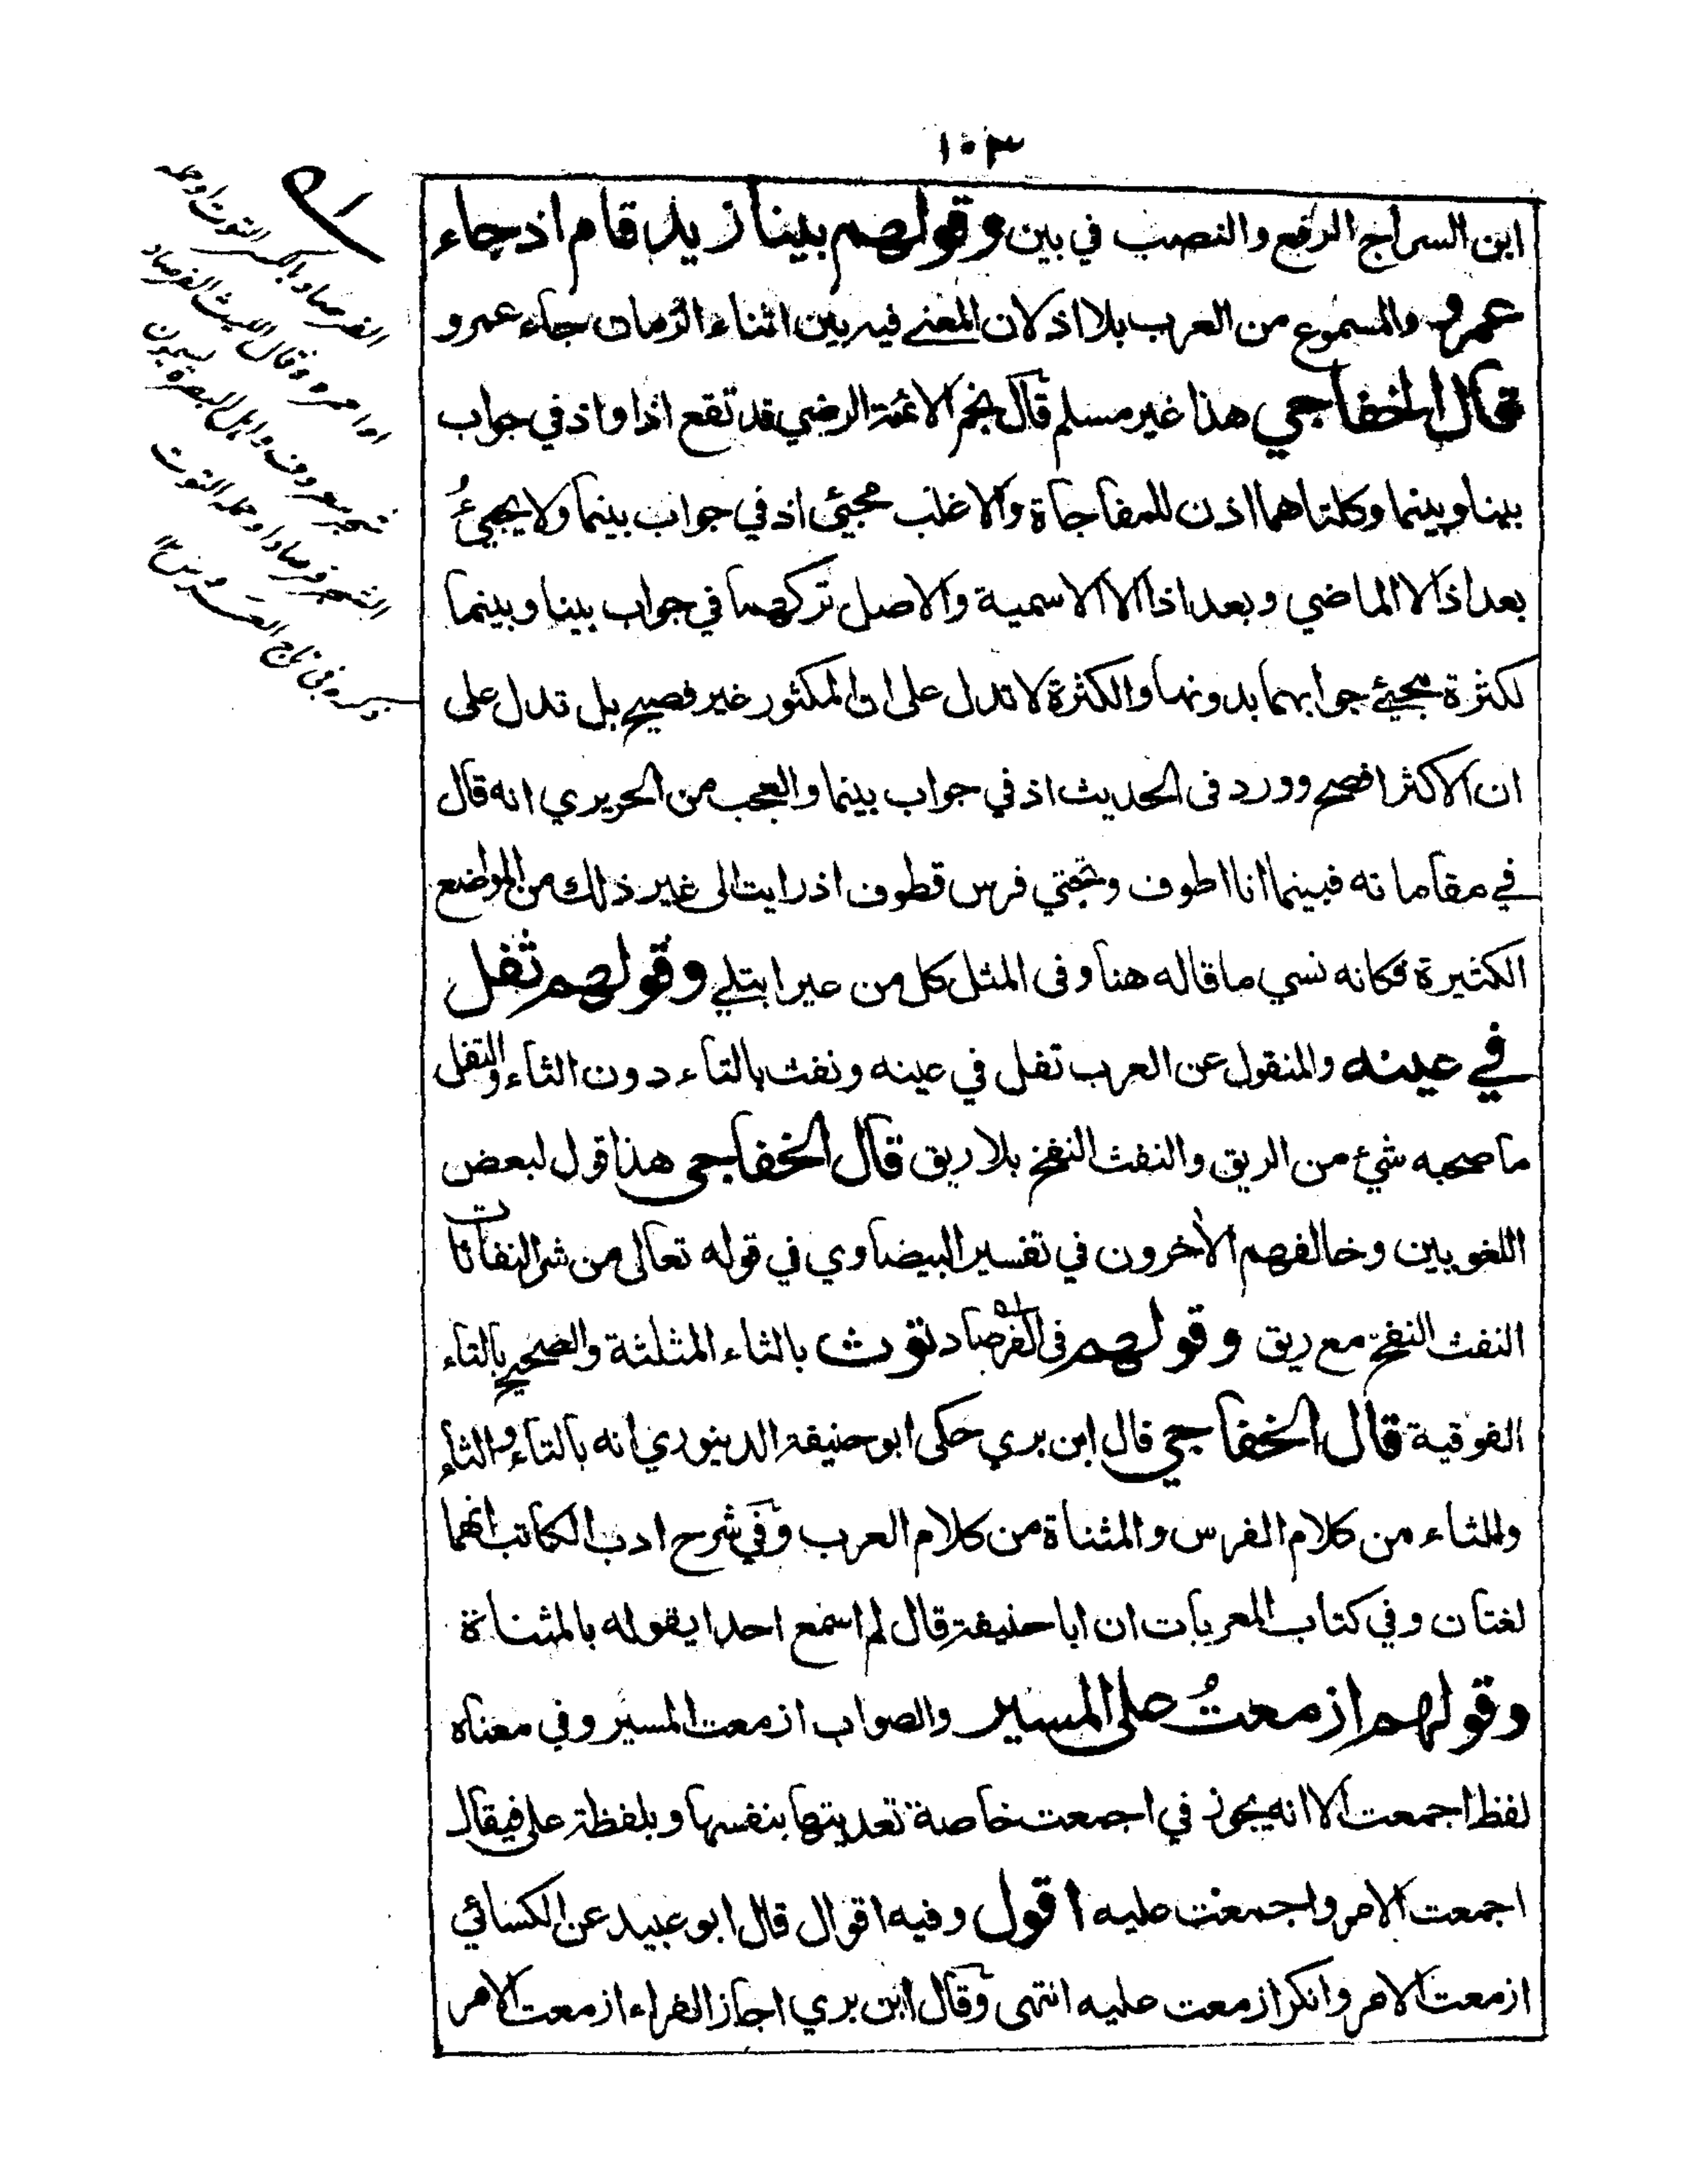 ١٠٣
ابن السراج الرفع والنصب في بين وقولهم بينا زيد قام اذ جاء
عمرو والمسموع من العرب بلا اذ لان المعنى فيه بين اثناء الزمان جاء عمرو
قال الخفاجي هذا غير مسلم قال نجم الائمة الرضي قد تقع اذا واذ في جواب
بينا وبينما وكلتاهما اذن للمفاجاة والاغلب مجيئ اذ في جواب بينما ولا يجيئُ
بعد اذ الا الماضي وبعد اذا الا الاسمية والاصل تركهما في جواب بينا وبينما
لكثرة مجيئ جوابهما بدونهما والكثرة لا تدل على ان المكثور غير فصيح بل تدل على
ان الاكثر افصح وورد فى الحديث اذ في جواب بينما والعجب من الحريري انه قال
في مقاماته فبينما انا اطوف وتحتي فرس قطوف اذ رايت الى غير ذلك من المواضع
الكثيرة فكانه نسي ما قاله هنا وفى المثل كل من عير ابتلي وقولهم ثفل
في عينه والمنقول عن العرب تفل في عينه ونفث بالتاء دون الثاء والتفل
ما صحبه شيء من الريق والنفث النفخ بلا ريق قال الخفاجى هذا قول لبعض
اللغويين وخالفهم الأخرون في تفسير البيضاوي في قوله تعالى من شر النفاثات
النفث النفخ مع ريق وقولهم فى الفرصاد توث بالثاء المثلثة والصحيح بالتاء
الفوقية قال الخفاجي قال ابن بري حكى ابو حنيفة الدينوري انه بالتاء والثاء
والثاء من كلام الفرس والمثناة من كلام العرب وفي شرح ادب الكاتب انهما
لغتان وفي كتاب المعربات ان ابا حنيفة قال لم اسمع احدا يقوله بالمثناة
وقولهم ازمعتُ على المسير والصواب ازمعت المسير وفي معناه
لفظ اجمعت الا انه يجوز في اجمعت خاصة تعديتها بنفسها وبلفظة على فيقال
اجمعت الامر واجمعت عليه اقول وفيه اقوال قال ابو عبيد عن الكسائي
ازمعت الامر وانكر ازمعت عليه انتهى وقال ابن بري اجاز الفراء ازمعت الامر
الفرصاد بالكسر التوت او حمله
او احمره وقال الليث الفرصاد
شجر معروف واهل البصرة يسمون
الشجر فرصادا وحمله التوت